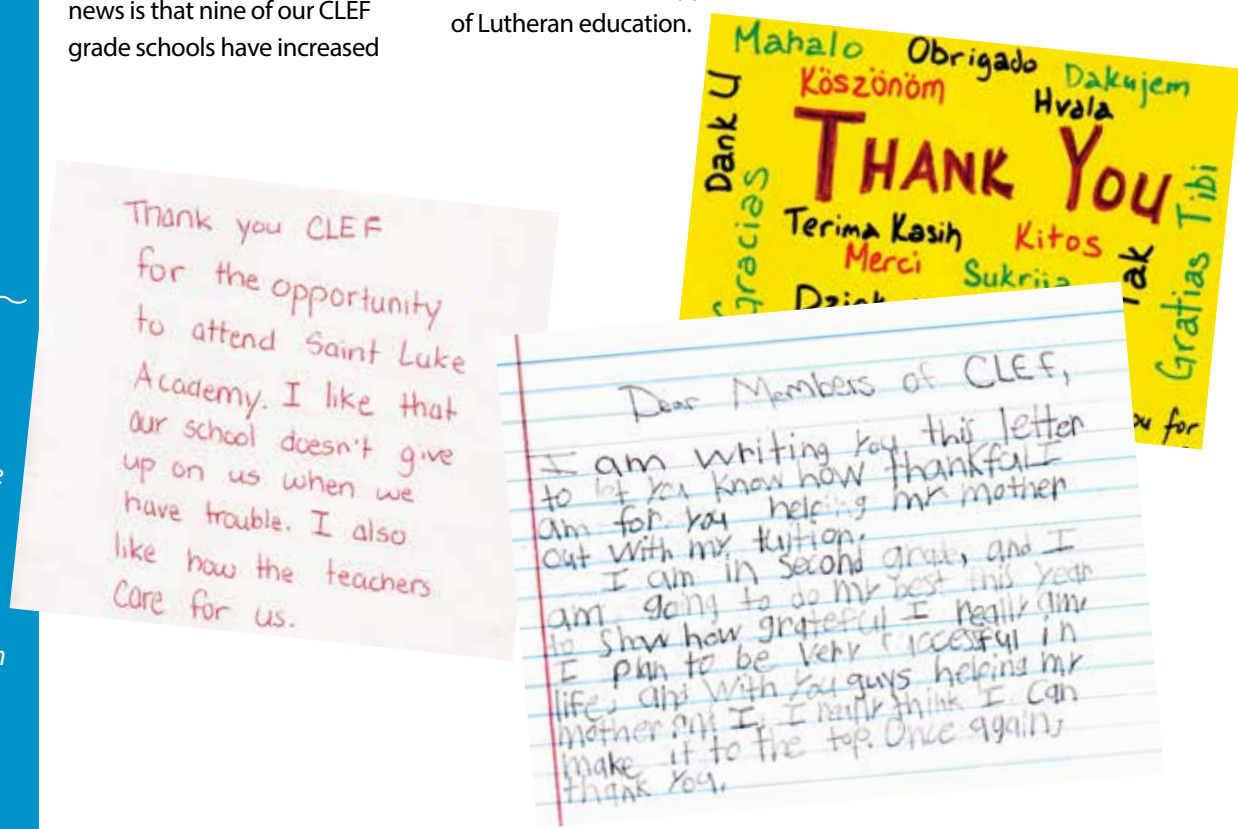 news is that nine of our CLEF
grade schools have increased
of Lutheran education.
Mahalo
Obrigado
Dakujem
Köszönöm
Hvala
Dank U
THANK YOU
Gracias
Terima Kasih
Kitos
Merci
Sukrija
Tak
Gratias Tibi
for
Thank you CLEF
for the opportunity
to attend Saint Luke
Academy. I like that
our school doesn't give
up on us when we
have trouble. I also
like how the teachers
care for us.
Dear Members of CLEF,
I am writing you this letter
to let you know how thankful I
am for you helping my mother
out with my tuition.
I am in second grade, and I
am going to do my best this year
to show how grateful I really am
I plan to be very successful in
life, and with you guys helping my
mother and I, I really think I can
make it to the top. Once again,
thank you.